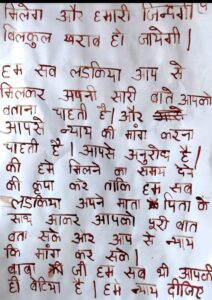 मिलेगा और हमारी जिन्दगी
बिलकुल खराब हो जायेगी।
हम सब लडकिया आप से
मिलकर अपनी सारी बाते आपको
बताना चाहती है। और
आपसे न्याय की मांग करना
चाहती है। आपसे अनुरोध है।
की हमे मिलने का समय देने
की कृपा करे ताकि हम सब
लडकिया अपने माता पिता के
साथ आकर आपको पूरी बात
बता सके और आप से न्याय
कि मांग कर सके।
बाबा जी हम सब भी आपकी
ही बेटिया है। हमे न्याय दीजिए